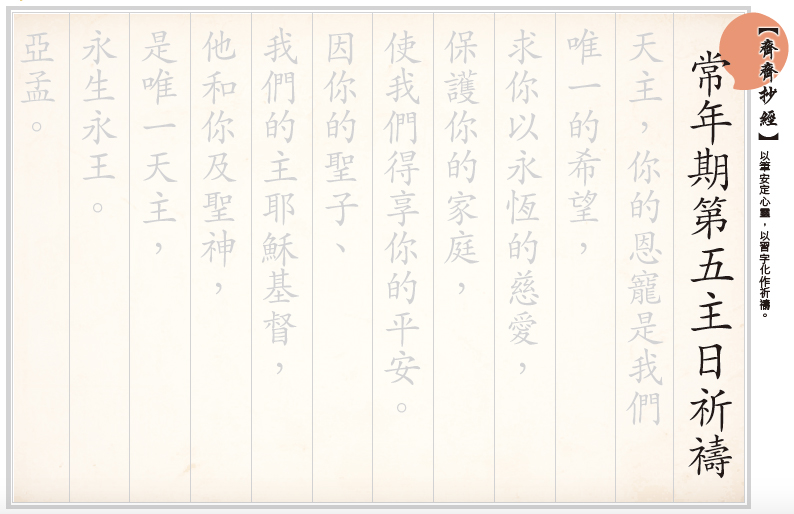 【齊齊抄經】以筆安定心靈，以習字化作祈禱。
常年期第五主日祈禱
天主，你的恩寵是我們
唯一的希望，
求你以永恆的慈愛，
保護你的家庭，
使我們得享你的平安。
因你的聖子、
我們的主耶穌基督，
他和你及聖神，
是唯一天主，
永生永王。
亞孟。